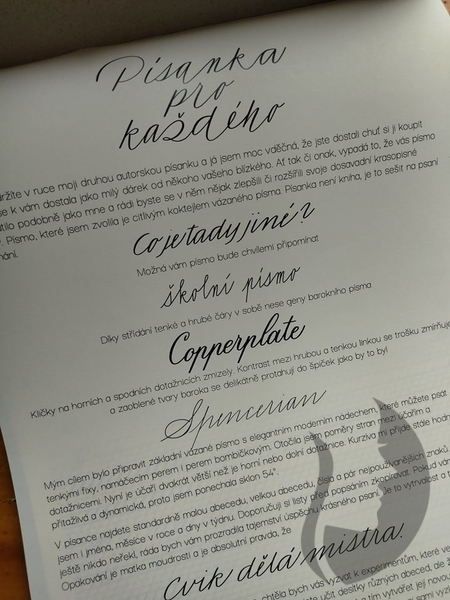 Písanka
pro
každého
držíte v ruce moji druhou autorskou písanku a já jsem moc vděčná, že jste dostali chuť si ji koupit
se k vám dostala jako milý dárek od někoho vašeho blízkého. Ať tak či onak, vypadá to, že vás písmo
tilo podobně jako mne a rádi byste se v něm nějak zlepšili či rozšířili svoje dosavadní krasopisné
Písmo, které jsem zvolila je citlivým koktejlem vázaného písma. Písanka není kniha, je to sešit na psaní
Co je tady jiné?
Možná vám písmo bude chvílemi připomínat
školní písmo
Díky střídání tenké a hrubé čáry v sobě nese geny barokního písma
Copperplate
Kličky na horních a spodních dotažnicích zmizely. Kontrast mezi hrubou a tenkou linkou se trošku zmírňuje
a zaoblené tvary baroka se delikátně protahují do špiček jako by to byl
Spencerian
Mým cílem bylo připravit základní vázané písmo s elegantním moderním nádechem, které můžete psát
tenkými fixy, namáčecím perem i perem bombičkovým. Otočila jsem poměry stran mezi účařím a
dotažnicemi. Nyní je účaří dvakrát větší než je horní nebo dolní dotažnice. Kurzíva mi přijde stále
přitažlivá a dynamická, proto jsem ponechala sklon 54°.
V písance najdete standardně malou abecedu, velkou abecedu, čísla a pár nejpoužívanějších
jsem i jména, měsíce v roce a dny v týdnu. Doporučuji si listy před popsáním zkopírovat. Pokud
ještě nikdo neřekl, ráda bych vám prozradila tajemství úspěchu krásného psaní. Je to vytrvalost a
Opakování je matka moudrosti a je absolutní pravda, že
Cvik dělá mistra.
chtěla bych vás vyzvat k experimentům, které
učit desítky různých abeced, ale
a tím vytvářet její